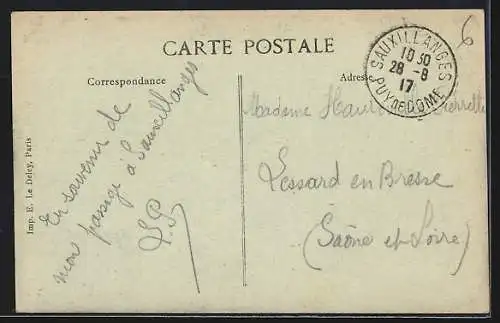 CARTE POSTALE
Correspondance
En souvenir de
mon passage à Sauxillanges
Imp. E. Le Deley, Paris
SAUXILLANGES
10 30
28 -8
17
PUY DE DOME
6
Madame
Lessard en Bresse
(Saône et Loire)